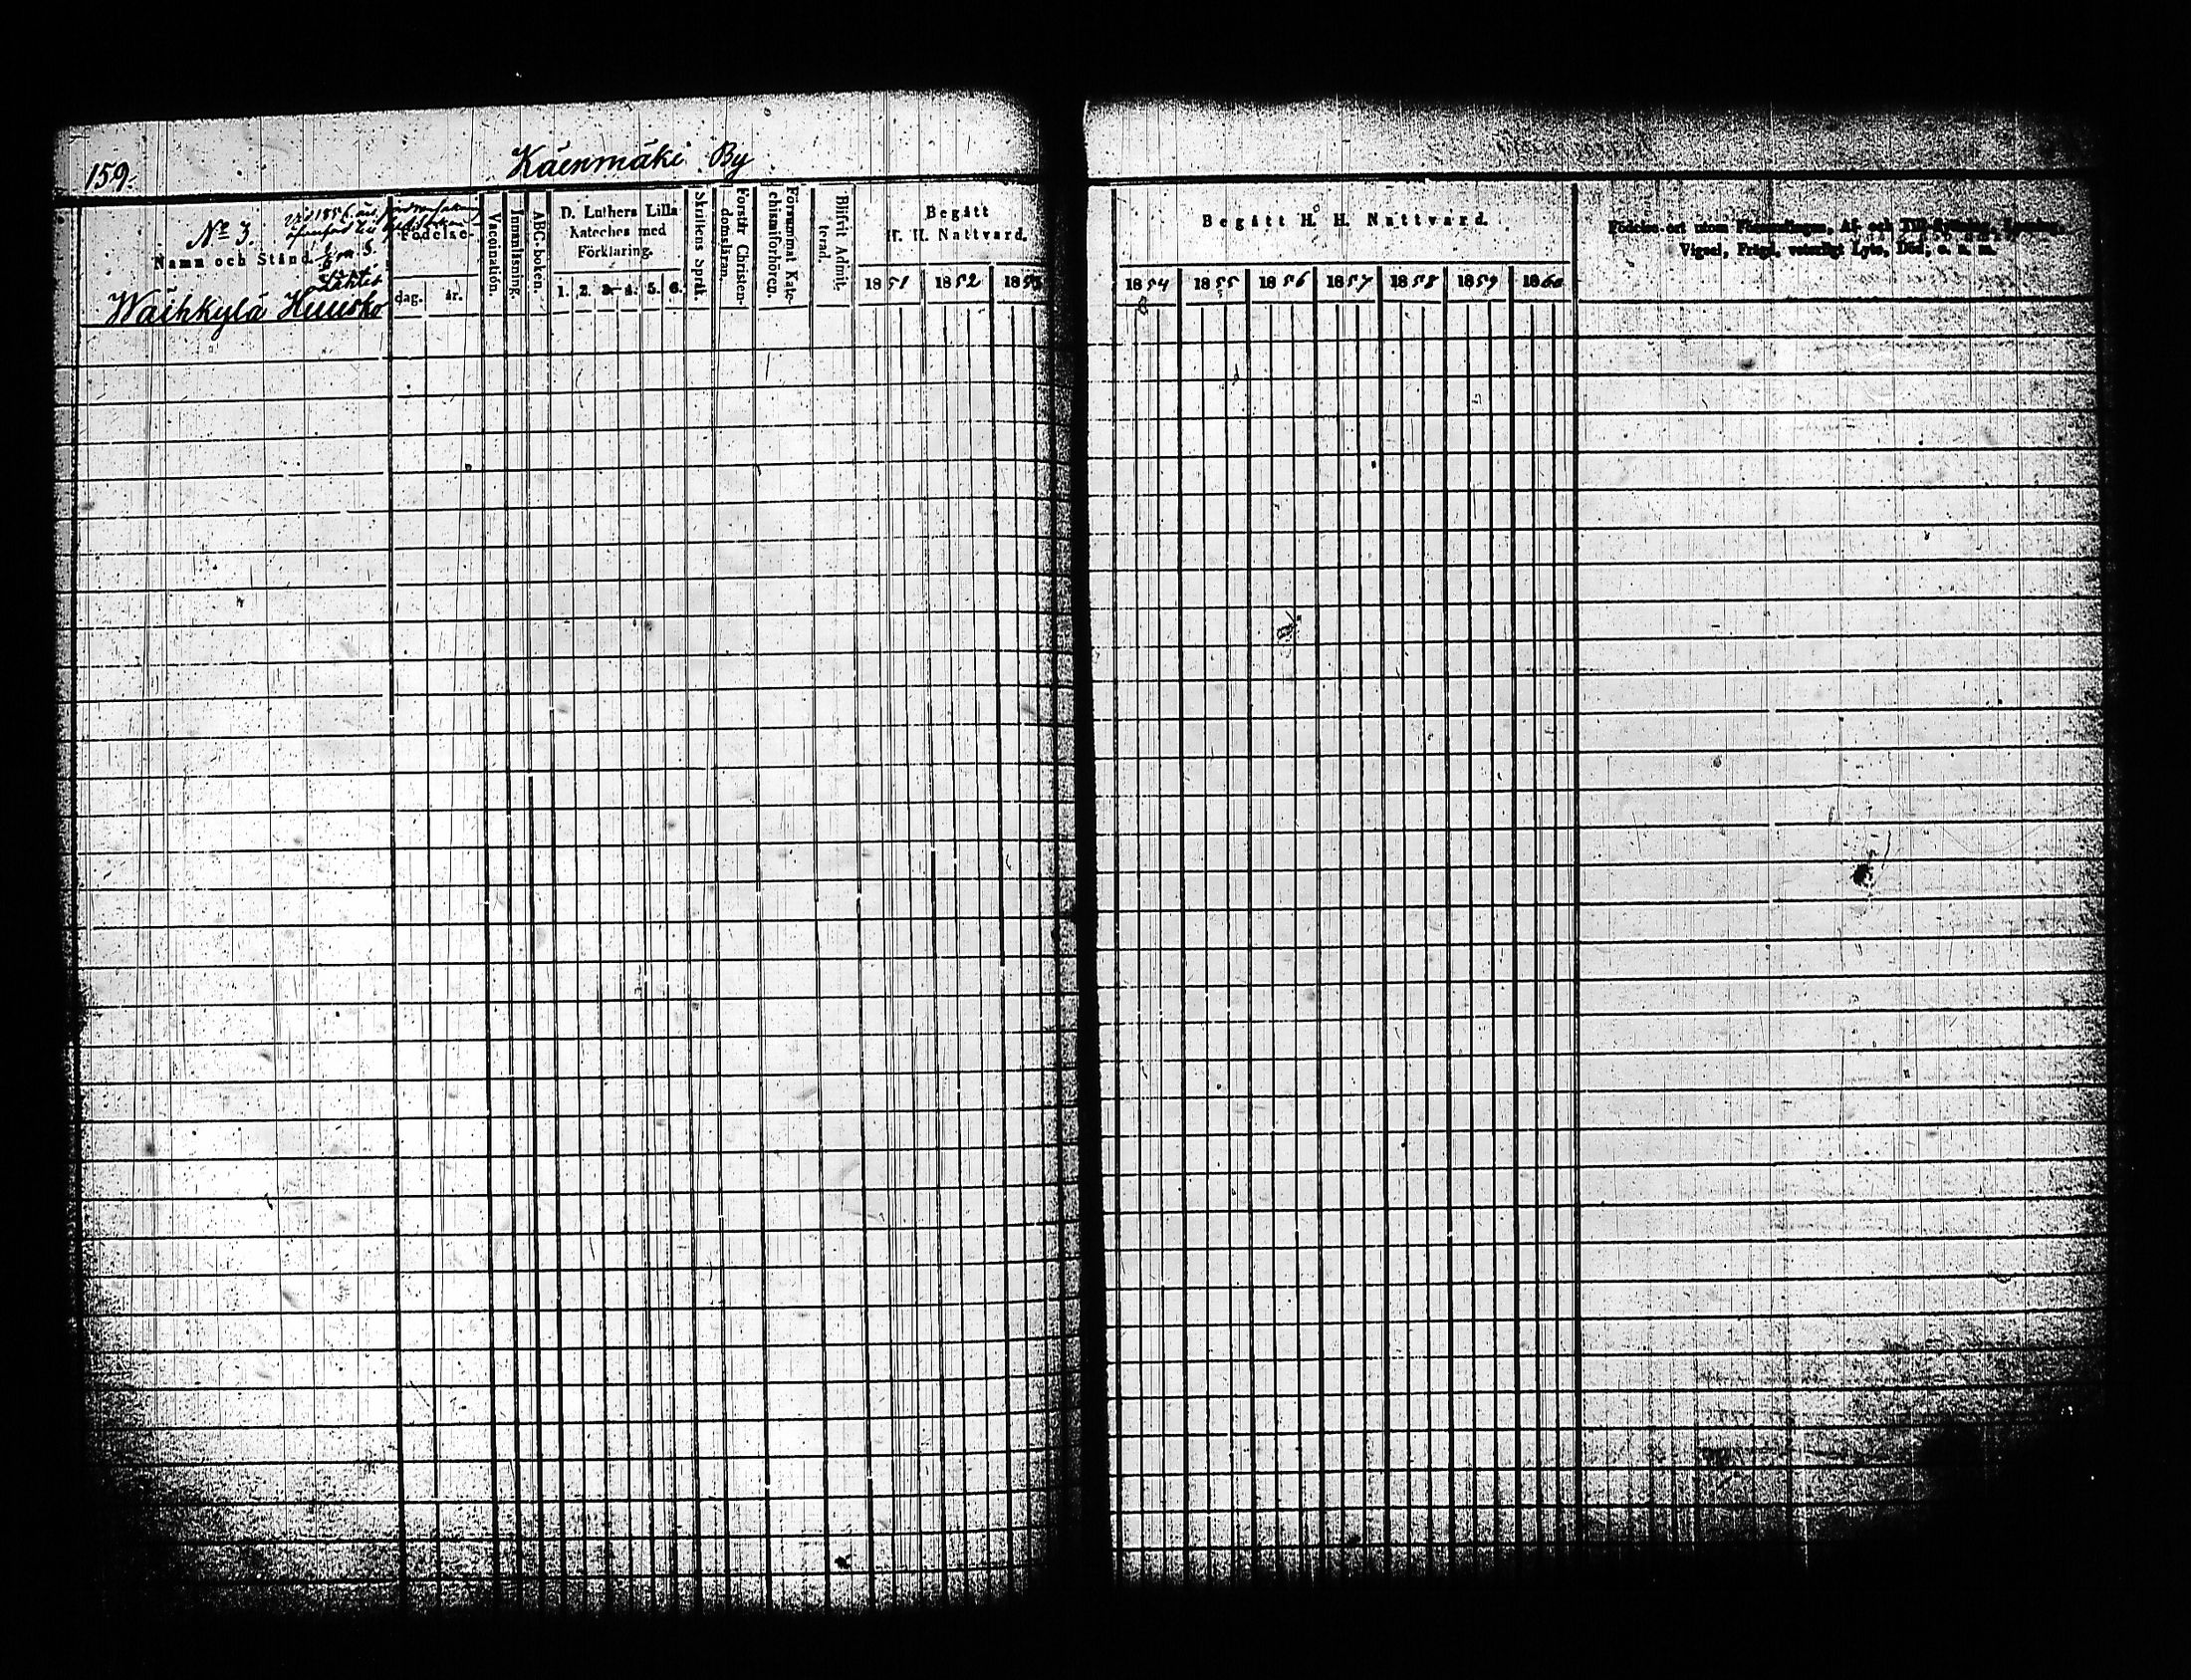 159.
Käenmäki By
Nº 3.
Namn och Stånd.
Lahtis
Waihkylä Huusko
Födelse-
dag. år.
Vaccination.
Innanläsning.
ABC-boken.
D. Luthers Lilla
Kateches med
Förklaring.
1. 2. 3. 4. 5. 6.
Skriftens Språk.
Förstår Christen-
domsläran.
Försummat Kate-
chismiförhören.
Blifvit Admit-
terad.
Begått
H. H. Nattvard.
1851 1852 1853
Begått H. H. Nattvard.
1854 1855 1856 1857 1858 1859 1860
Födelse-ort utom Församlingen, Af- och Till-flyttning,
Vigsel, Frägd, veterligt Lyte, Död, o. s. m.